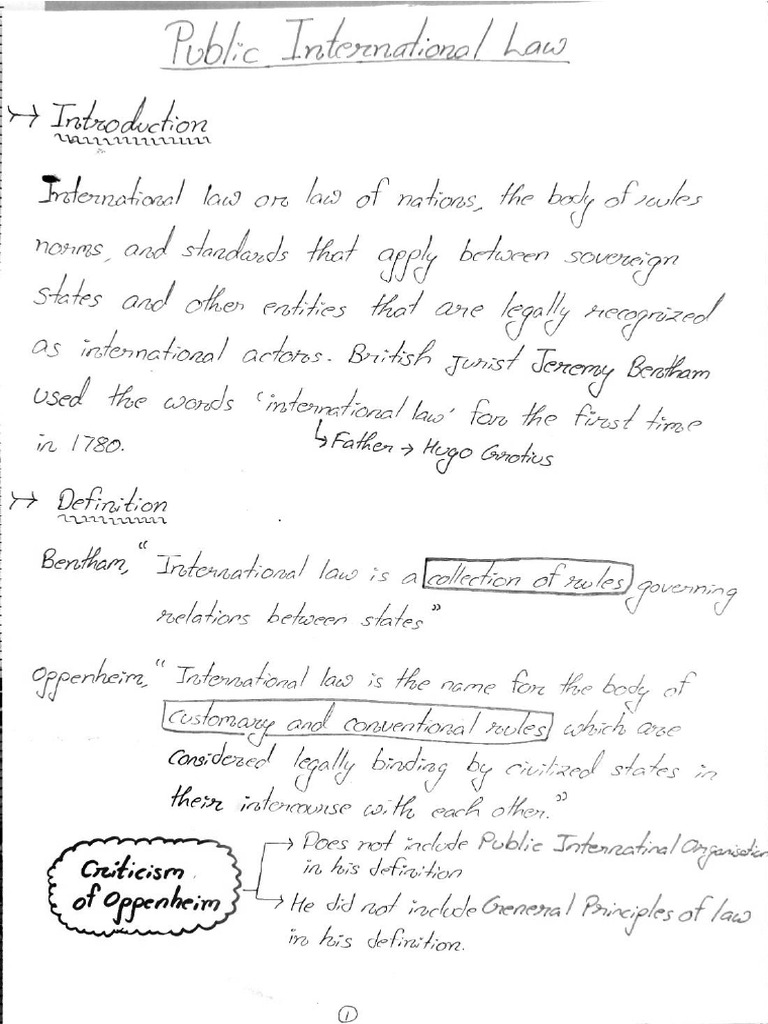 Public International Law
↣ Introduction
International law or law of nations, the body of rules
norms, and standards that apply between sovereign
states and other entities that are legally recognized
as international actors. British jurist Jeremy Bentham
used the words 'international law' for the first time
in 1780.
↳ Father → Hugo Grotius
↣ Definition
Bentham, “International law is a collection of rules governing
relations between states”
Oppenheim, “International law is the name for the body of
customary and conventional rules which are
considered legally binding by civilized states in
their intercourse with each other.”
Criticism
of Oppenheim
→ Does not include Public Internatinal Organisation
in his definition
→ He did not include General Principles of law
in his definition.
1